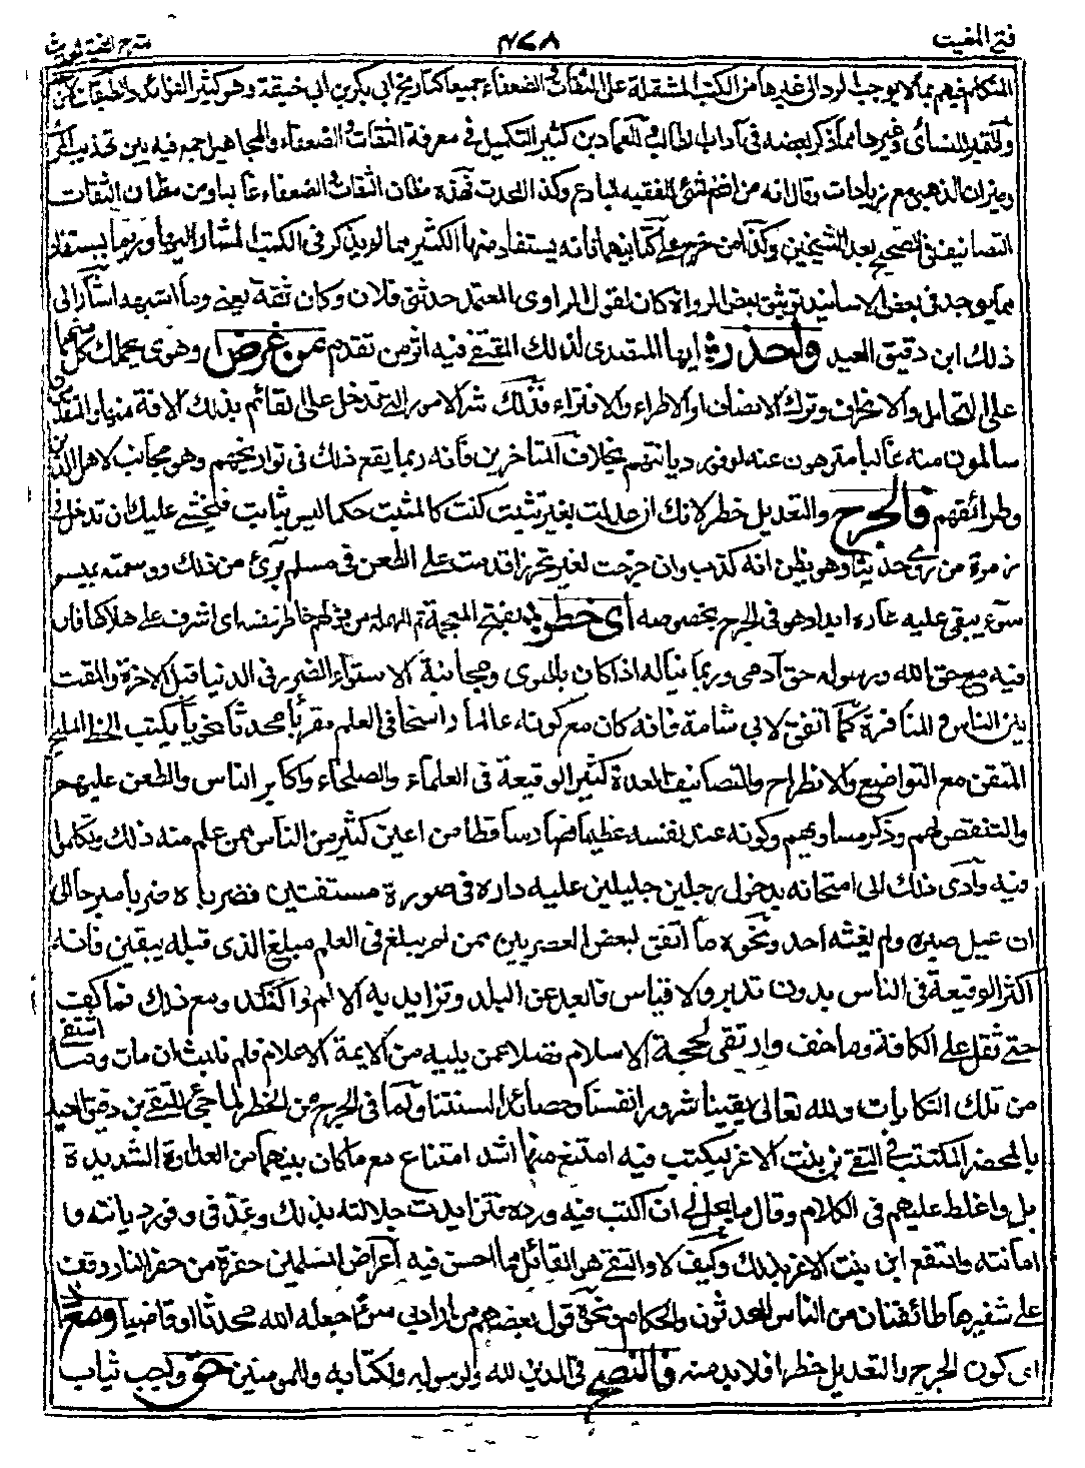 فتح المغيث ٤٧٨ شرح الفية الحديث
المتكلم فيهم بما لا يوجب الرد الى غيرها من الكتب المشتملة على الثقات والضعفاء جميعا كتاريخ ابي بكر بن ابي خيثمة وهو كثير الفوائد والطبقات لابن
والتمييز للنسائ وغيرها مما ذكر بعضه في آداب الطالب وللعماد بن كثير التكميل في معرفة الثقات والضعفاء والمجاهيل جمع فيه بين تهذيب المزي
وميزان الذهبي مع زيادات وقال انه من انفع شئ للفقيه البارع وكذا المحدث فهذه مظان الثقات والضعفاء غالبا ومن مظان الثقات
التصانيف في الصحيح بعد الشيخين وكذا من خرج على كتابيهما فانه يستفاد منها الكثير مما لم يذكر في الكتب المشار اليها وربما يستفاد
مما يوجد في بعض الاسانيد توثيق بعض الرواة كان لقول الراوي المعتمد حدثني فلان وكان ثقة يعني وما اشبهه اشار الى
ذلك ابن دقيق العيد واحذره ايها المتصدى لذلك المقتفي فيه اثر من تقدم من غرض وهوى يحملك كل منهما
على التحامل والانحراف وترك الانصاف او الاطراء والافتراء فذلك شر الامور التي تدخل على القائم بذلك الآفة منها والمتقدمون
سالمون منه غالبا منزهون عنه لوفور ديانتهم بخلاف المتاخرين فانه ربما يقع ذلك في تواريخهم وهو مجانب لاهل الدين
وطرائقهم فالجرح والتعديل خطر لانك ان عدلت بغير تثبت كنت كالمثبت حكما ليس بثابت فيخشى عليك ان تدخل في
زمرة من روى حديثا وهو يظن انه كذب وان جرحت لغير تحرز اقدمت على الطعن في مسلم برئ من ذلك ووسمته بميسم
سوء يبقى عليه عاره ابدا وهو في الجرح بخصوصه اى خطر بفتح المعجمة ثم المهملة من قولهم خاطر بنفسه اى اشرف على هلاكها فان
فيه مع حق الله ورسوله حق آدمي وربما يناله اذا كان بالهوى ومجانبة الاستواء الضرر في الدنيا قبل الآخرة والمقت
بين الناس والمنافرة كما اتفق لابي شامة فانه كان مع كونه عالما راسخا في العلم مقرئا محدثا نحويا يكتب الخط المليح
المتقن مع التواضع والانطراح والتصانيف العدة كثير الوقيعة في العلماء والصلحاء واكابر الناس والطعن عليهم
والتنقص لهم وذكر مساويهم وكونه عند نفسه عظيما فصار ساقطا من اعين كثير من الناس ممن علم منه ذلك وتكلموا
فيه وادى ذلك الى امتحانه بدخول رجلين جليلين عليه داره في صورة مستفتيين فضرباه ضربا مبرحا الى
ان عيل صبره ولم يغثه احد ونحوه ما اتفق لبعض العصريين ممن لم يبلغ في العلم مبلغ الذى قبله بيقين فانه
اكثر الوقيعة في الناس بدون تدبر ولا قياس فابعد عن البلد وتزايد به الالم والنكد ومع ذلك فما كف
حتى ثقل على الكافة وما خف وارتقى لحجة الاسلام فضلا عمن يليه من الايمة الاعلام فلم يلبث ان مات وما اشتفى
من تلك النكايات والله تعالى يقينا شرور انفسنا وحصائد السنتنا ولما في الجرح من الخطر لما جئ للتقي بن دقيق العيد
بالمحضر المكتتب في التقي بن بنت الاعز ليكتب فيه امتنع منها اشد امتناع مع ما كان بينهما من العداوة الشديدة
بل واغلظ عليهم في الكلام وقال ما يحل لي ان اكتب فيه ورده فتزايدت جلالته بذلك وعد في وفور ديانته و
امانته وانتفع ابن بنت الاعز بذلك وكيف لا والتقي هو القائل مما احسن فيه اعراض المسلمين حفرة من حفر النار وقف
على شفيرها طائفتان من الناس المحدثون والحكام ونحوه قول بعضهم من اراد بي سوءا جعله الله محدثا او قاضيا ومع ذا
اى كون الجرح والتعديل خطرا فلا بد منه فالنصح في الدين لله ولرسوله ولكتابه والمومنين حق واجب يثاب